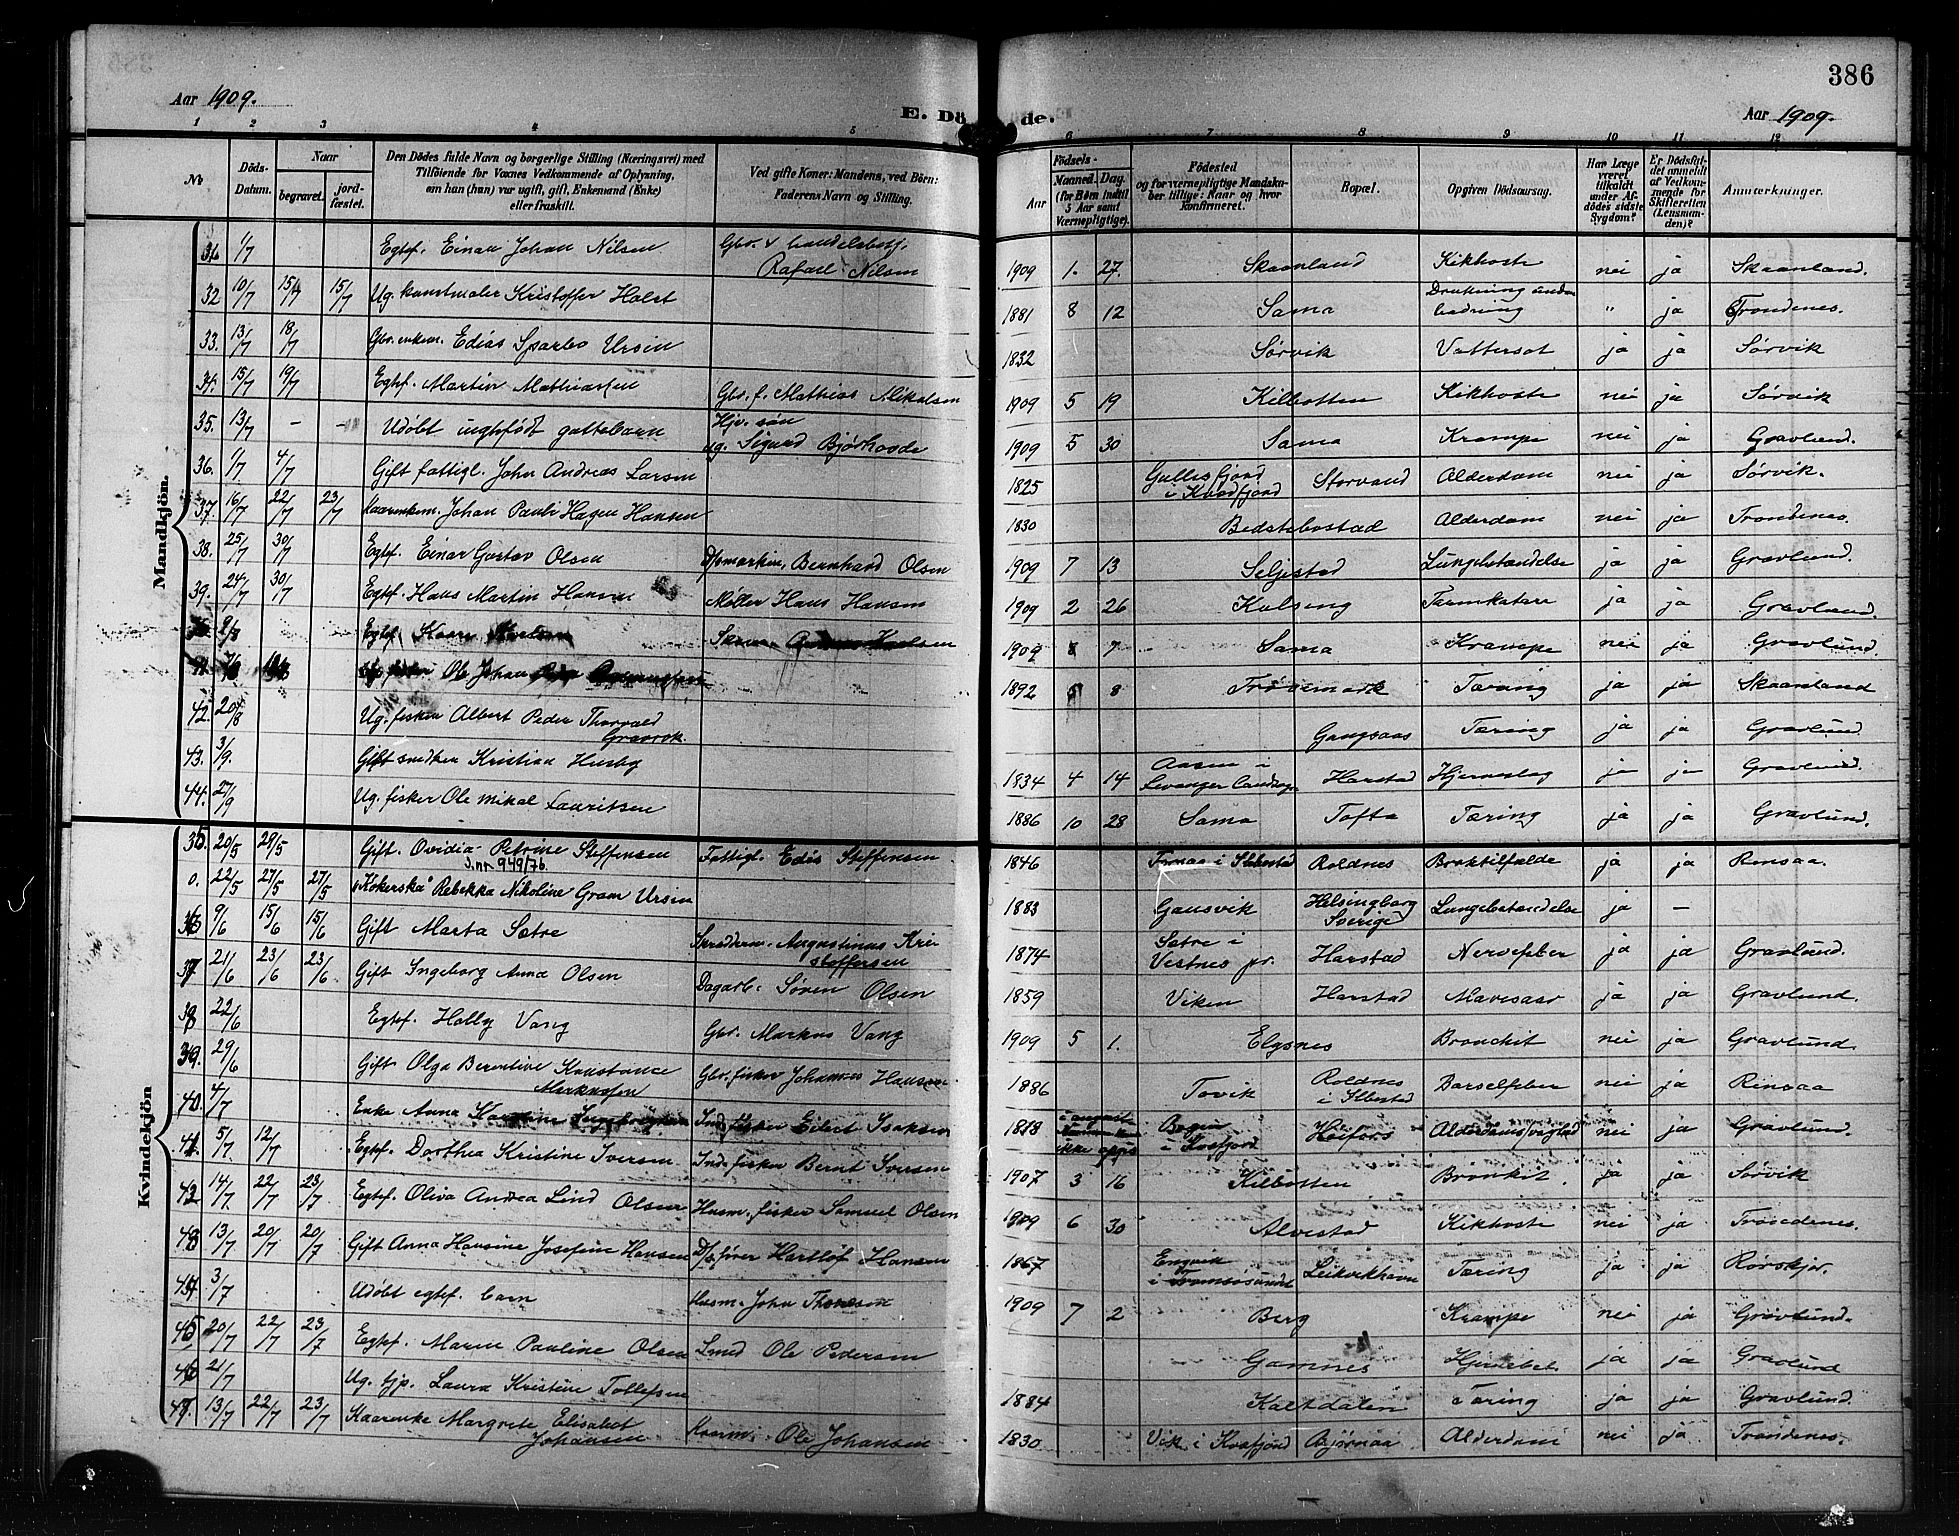 386
Aar 1909.
E. Dö de.
Aar 1909.
1 2 3 4 5 6 7 8 9 10 11 12
No
Döds-Datum.
Naar
begravet.
jord-fæstet.
Den Dödes fulde Navn og borgerlige Stilling (Næringsvei) med
Tilföiende for Voxnes Vedkommende af Oplysning,
om han (hun) var ugift, gift, Enkemand (Enke)
eller fraskilt.
Ved gifte Koner: Mandens, ved Börn:
Faderens Navn og Stilling.
Födsels-
Aar
Maaned. Dag.
(for Börn indtil
5 Aar samt
Værnepligtige).
Födested
og for værnepligtige Mandska-
ber tillige: Naar og hvor
konfirmeret.
Bopæl.
Opgiven Dödsaarsag.
Har Læge
været
tilkaldt
under Af-
dödes sidste
Sygdom?
Er Dödsfal-
det anmeldt
af Vedkom-
mende for
Skifteretten
(Lensman-
den)?
Anmærkninger.
Mandkjön.
31. 1/7 Egtef. Einar Johan Nilsen Gbr. v handelsbetj. Rafael Nilsen 1909 1. 27. Skaanland Kikhoste nei ja Skaanland.
32 10/7 15/7 15/7 Ug. kunstmaler Kristoffer Holst 1881 8 12 Sama Drukning under badning " ja Trondenes.
33. 13/7 18/7 Gbr. enkem. Edias Sparbo Ursin 1832 Sørvik Vattersot ja ja Sørvik
34. 15/7 19/7 Egtef. Martin Mathiassen Gbr. f. Mathias Mikalsen 1909 5 19 Kilbotten Kikhoste nei ja Sørvik
35. 13/7 - - Udöbt uegtefödt guttebarn Hjv. søn ug. Sigurd Bjørhovde 1909 5 30 Sama Krampe nei ja Gravlund.
36. 1/7 4/7 Gift fattigl. John Andreas Larsen 1825 Gullesfjord i Kvædfjord Storvand Alderdom nei ja Sørvik.
37. 16/7 22/7 23/7 Kaarenkem. Johan Paul Hagen Hansen 1830 Bedstebostad Alderdom nei ja Trondenes.
38. 25/7 30/7 Egtef. Einar Gustav Olsen Bernhard Olsen 1909 7 13 Seljestad Lungebetændelse ja ja Gravlund.
39. 24/7 30/7 Egtef. Hans Martin Hansen Møller Hans Hansen 1909 2 26 Kulseng Tarmkatarr ja ja Gravlund.
9/8 Egtef. Kaare 1909 8 7 Sama Krampe nei ja Gravlund.
fisker Ole Johan 1892 5 8 Trøssemark Tæring ja ja Skaanland
42. 20/8 Ug. fisker Albert Peder Thorvald Graavik Gangsaas Tæring ja ja Gravlund
43. 3/9 Gift snedker Kristian Husby 1834 4 14 Aasen i Levanger landsogn Harstad Hjerneslag ja ja Gravlund.
44. 27/9 Ug. fisker Ole Mikal Lauritsen 1886 10 28 Sama Tofta Tæring ja ja Gravlund.
Kvindekjön
35 20/5 29/5 Gift. Ovidia Petrine Steffensen Fattigl. Edis Steffensen 1846 i Ibbestad Roldnes Broktilfælde ja ja Rensaa.
J.nr 949/76
0. 22/5 27/5 27/5 "Kokerska" Rebekka Nikoline Gram Ursin 1883 Gausvik Helsingborg Sverige Lungebetændelse ja -
36 9/6 15/6 15/6 Gift Marta Sætre Skrædderm. Augustinus Kristoffersen 1874 Sætre i Vestnes pr. Harstad Nervefeber ja ja Gravlund.
37 21/6 23/6 23/6 Gift Ingeborg Anna Olsen Dagarb. Søren Olsen 1859 Viken Harstad Mavesaar ja ja Gravlund.
38 22/6 Egtef. Hally Vang Gbr. Markus Vang 1909 5 1. Elgsnes Bronchit nei ja Gravlund.
39. 29/6 Gift Olga Berentine Konstance Markussen Gbr. fisker Johannes Hansen 1886 Tovik Roldnes i Ibbestad Barselfeber nei ja Rensaa
40. 4/7 Enke Anna Ind. fisker Eilert Isaksen 1818 i Kvæfjord Høifors Alderdomssvaghed nei ja Gravlund.
41 5/7 12/7 Egtef. Dorthea Kristine Iversen Ind. fisker Bernt Iversen 1907 3 16 Kilbotten Bronkit. ja ja Sørvik
42 14/7 22/7 23/7 Egtef. Oliva Andrea Lind Olsen Husm. fisker Samuel Olsen 1909 6 30 Alvestad Kikhoste nei ja Trondenes.
43 13/7 20/7 20/7 Gift Anna Hansine Josefine Hansen D/sfører Hartløf Hansen 1867 Engvik i Tromsøsundet Leikvikhavn Tæring ja ja Rørskjær.
44 3/7 Udöbt egtef. barn Husm. John Thomesen 1909 7 2 Berg Krampe nei ja Gravlund.
45 20/7 22/7 23/7 Egtef. Maren Pauline Olsen Smed Ole Pedersen Gamnes ja ja Gravlund
46 21/7 Ug. tjp. Laura Kristine Tollefsen 1884 Kaltdalen Tæring ja ja Gravlund.
47. 13/7 22/7 23/7 Kaarenke Margrete Elisabet Johansen Kaarm. Ole Johansen 1830 Vik i Kvæfjord Bjørnaa Alderdom nei ja Trondenes.